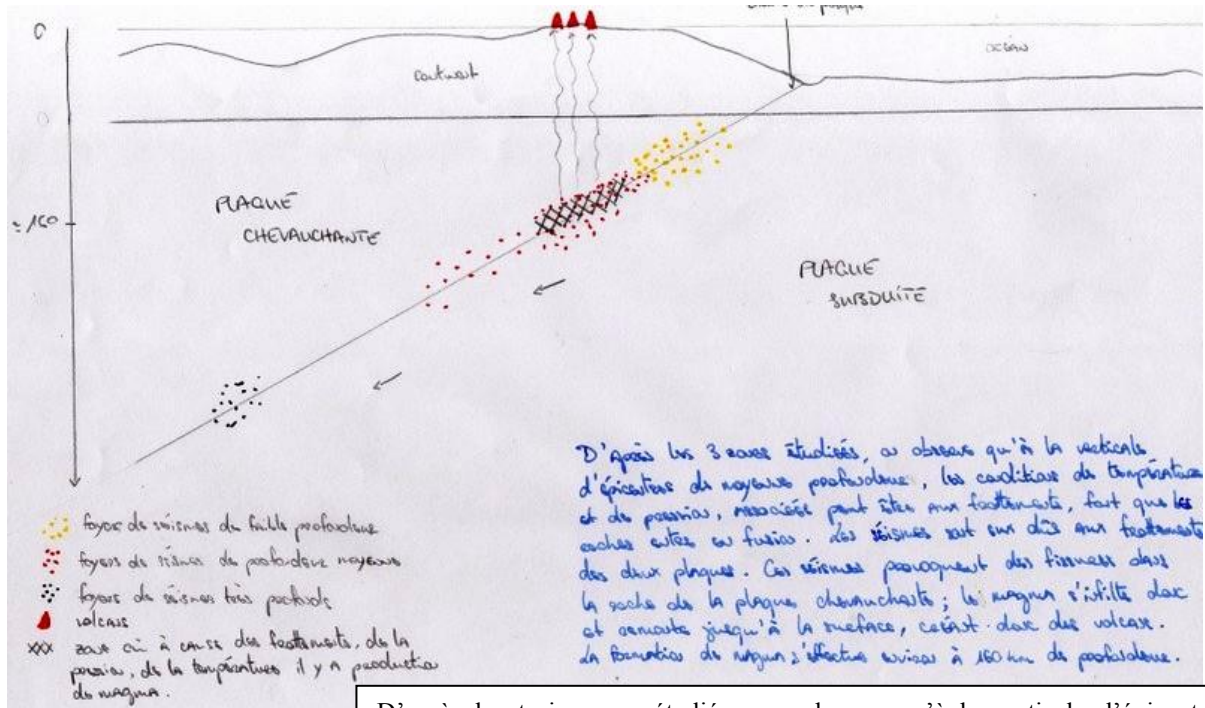 0
continent
océan
0
≈ 160
PLAQUE
CHEVAUCHANTE
PLAQUE
SUBDUITE
foyers de séismes de faible profondeur
foyers de séismes de profondeur moyenne
foyers de séismes très profonds
volcans
zone où à cause des frottements, de la
pression, de la températures il y a production
de magma.
D'après les 3 zones étudiées, on observe qu'à la verticale
d'épicentres de moyenne profondeur, les conditions de température
et de pression, associées peut êtres aux frottements, font que les
roches entre en fusion. Les séismes sont dûs aux frottements
des deux plaques. Ces séismes provoquent des fissures dans
la roche de la plaque chevauchante ; le magma s'infiltre donc
et remonte jusqu'à la surface, créant donc des volcans.
La formation de magma s'effectue environ à 160 km de profondeur.